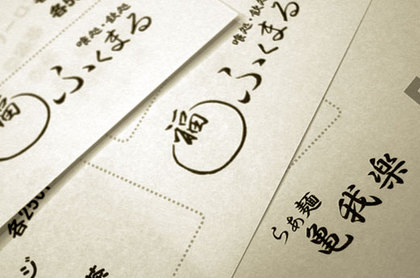 喰処・飲処
ふくまる
福
喰処・飲処
ふくまる
福
らぁ麺
亀我楽
各250